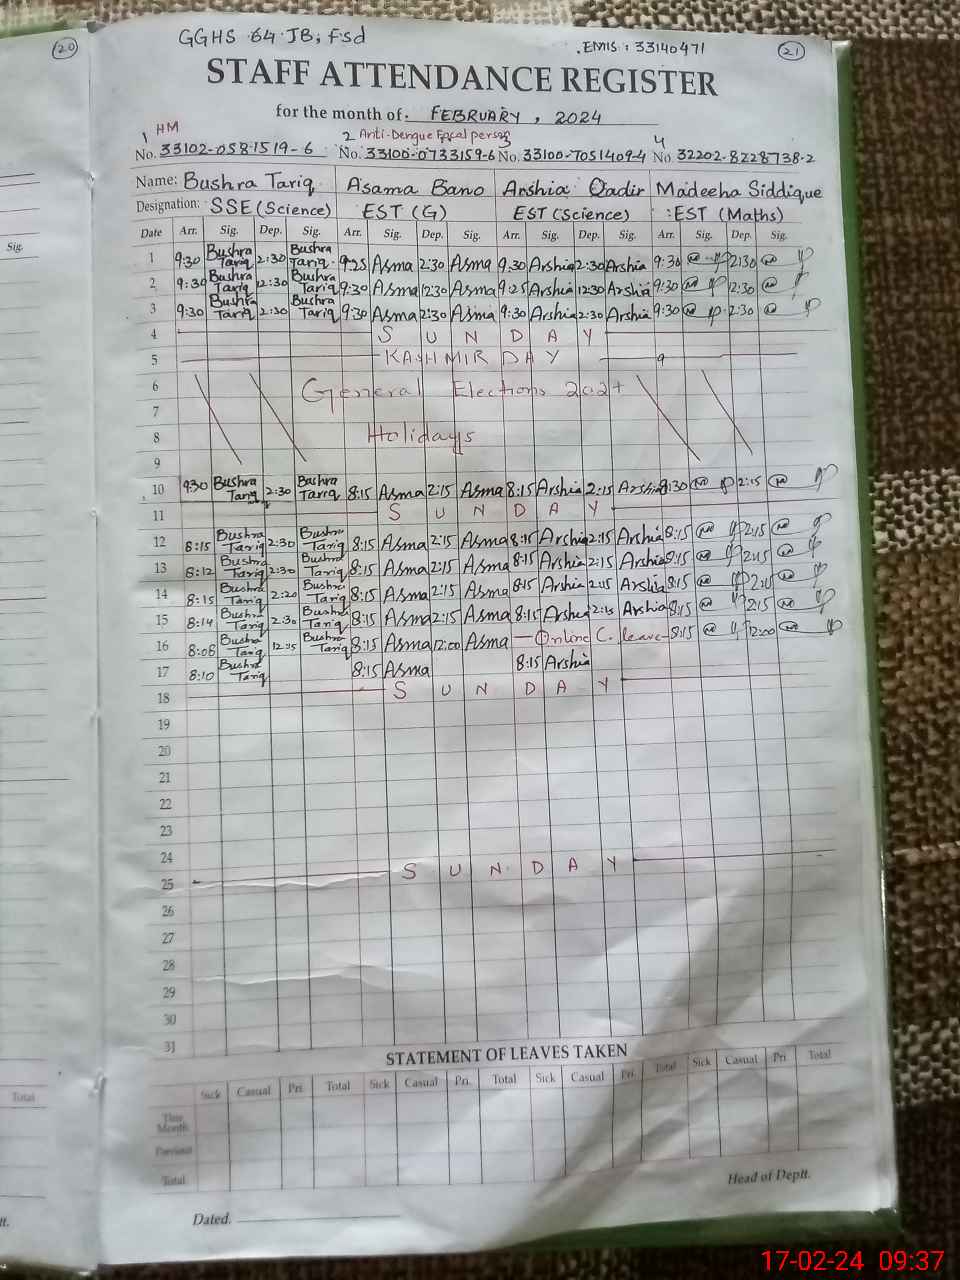 20
GGHS 64 JB, Fsd
EMIS : 33140471
21
STAFF ATTENDANCE REGISTER
for the month of. FEBRUARY , 2024
1 HM 2 Anti-Dengue Focal person 3 4
No. 33102-0581519-6 No. 33100-0733159-6 No. 33100-7051409-4 No. 32202-8228738-2
Name: Bushra Tariq Asama Bano Arshia Qadir Madeeha Siddique
Designation: SSE (Science) EST (G) EST (Science) EST (Maths)
Date Arr. Sig. Dep. Sig. Arr. Sig. Dep. Sig. Arr. Sig. Dep. Sig. Arr. Sig. Dep. Sig.
Sig.
1 9:30 Bushra Tariq 2:30 Bushra Tariq 9:25 Asma 2:30 Asma 9:30 Arshia 2:30 Arshia 9:30 2:30
2 9:30 Bushra Tariq 12:30 Bushra Tariq 9:30 Asma 12:30 Asma 9:25 Arshia 12:30 Arshia 9:30 12:30
3 9:30 Bushra Tariq 2:30 Bushra Tariq 9:30 Asma 2:30 Asma 9:30 Arshia 2:30 Arshia 9:30 2:30
4 S U N D A Y
5 KASHMIR DAY
6 General Elections 2024
7
8 Holidays
9
10 9:30 Bushra Tariq 2:30 Bushra Tariq 8:15 Asma 2:15 Asma 8:15 Arshia 2:15 Arshia 8:30 2:15
11 S U N D A Y
12 8:15 Bushra Tariq 2:30 Bushra Tariq 8:15 Asma 2:15 Asma 8:15 Arshia 2:15 Arshia 8:15 2:15
13 8:12 Bushra Tariq 2:30 Bushra Tariq 8:15 Asma 2:15 Asma 8:15 Arshia 2:15 Arshia 8:15 2:15
14 8:15 Bushra Tariq 2:20 Bushra Tariq 8:15 Asma 2:15 Asma 8:15 Arshia 2:15 Arshia 8:15 2:15
15 8:14 Bushra Tariq 2:30 Bushra Tariq 8:15 Asma 2:15 Asma 8:15 Arshia 2:15 Arshia 8:15 2:15
16 8:08 Bushra Tariq Bushra Tariq 8:15 Asma 12:00 Asma Online C. leave 8:15 12:00
17 8:10 Bushra Tariq 8:15 Asma 8:15 Arshia
18 S U N D A Y
19
20
21
22
23
24
25 S U N D A Y
26
27
28
29
30
31
STATEMENT OF LEAVES TAKEN
Sick Casual Pri. Total Sick Casual Pri. Total Sick Casual Pri. Total Sick Casual Pri. Total
Total
This Month
Previous
Total
Head of Deptt.
tt.
Dated.
17-02-24 09:37